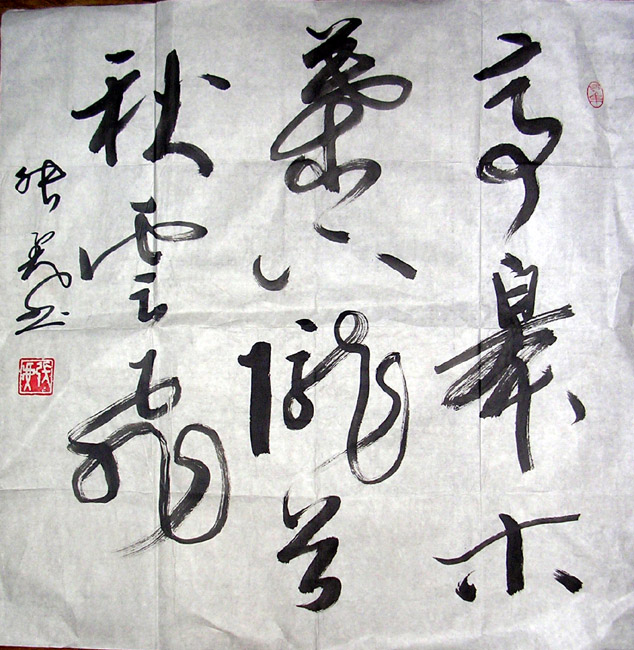 亭皋木
葉下隴首
秋雲飛
張書